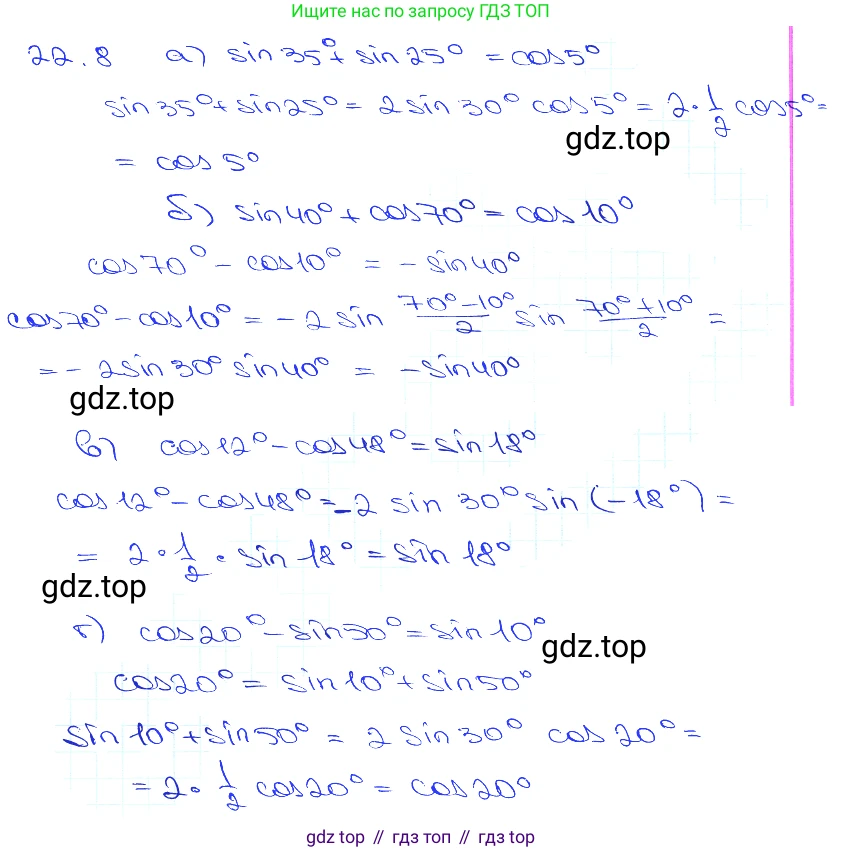 Ищите нас по запросу ГДЗ ТОП
22.8 а) sin 35° + sin 25° = cos 5°
sin 35° + sin 25° = 2 sin 30° cos 5° = 2 · 1/2 cos 5° =
gdz.top
= cos 5°
б) sin 40° + cos 70° = cos 10°
cos 70° - cos 10° = - sin 40°
cos 70° - cos 10° = - 2 sin (70° - 10°)/2 sin (70° + 10°)/2 =
= - 2 sin 30° sin 40° = - sin 40°
gdz.top
в) cos 12° - cos 48° = sin 18°
cos 12° - cos 48° = -2 sin 30° sin (-18°) =
= 2 · 1/2 · sin 18° = sin 18°
gdz.top
г) cos 20° - sin 50° = sin 10°
gdz.top
cos 20° = sin 10° + sin 50°
sin 10° + sin 50° = 2 sin 30° cos 20° =
= 2 · 1/2 cos 20° = cos 20°
gdz top // гдз топ // gdz top